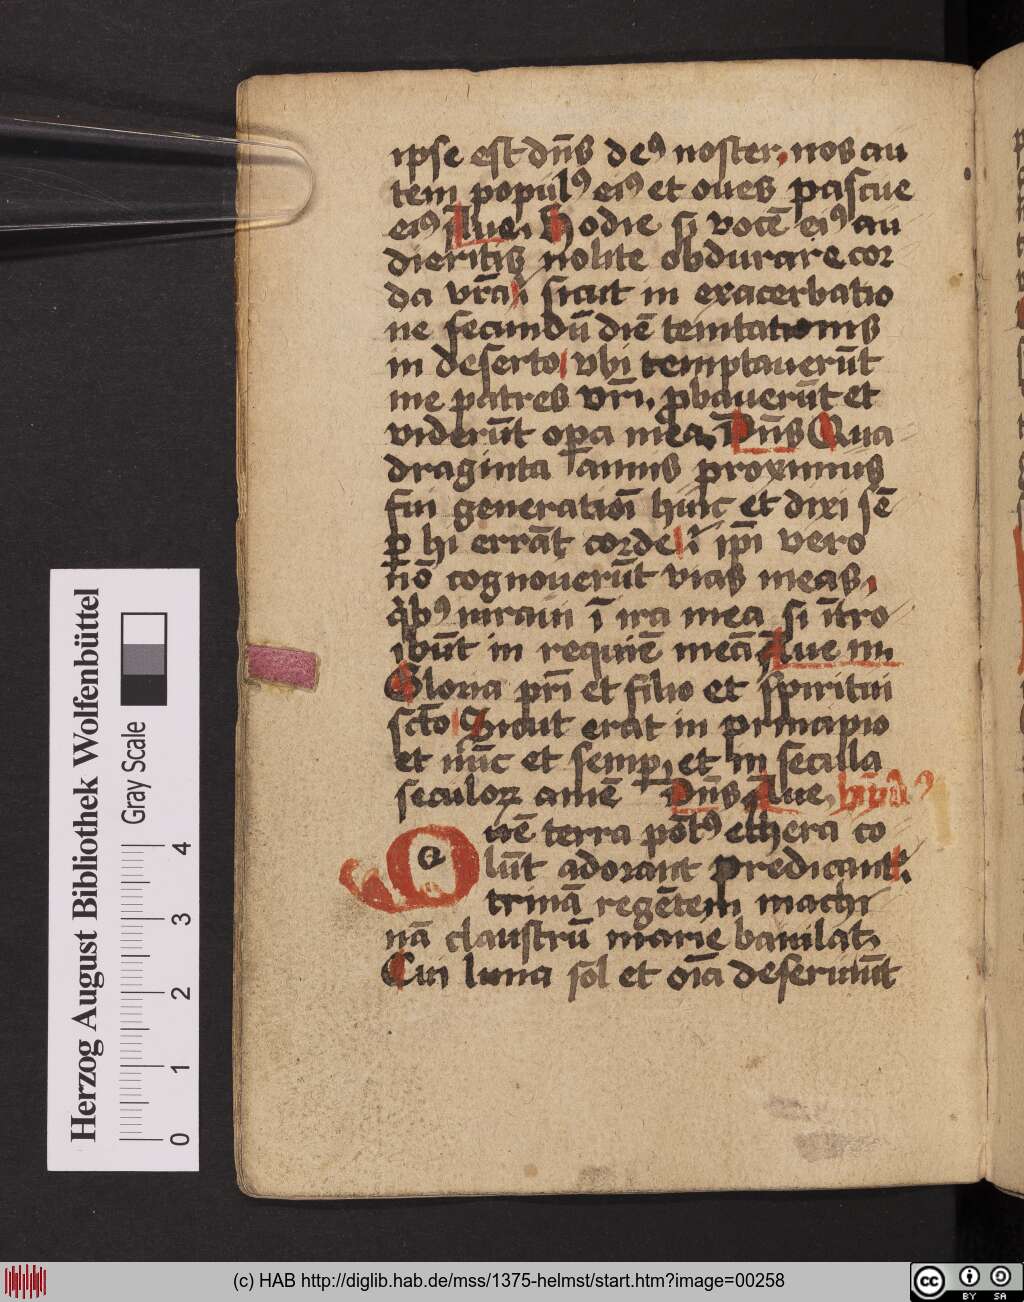 ipse est dn̄s deꝰ noster, nos au
tem populꝰ eiꝰ et oues pascue
eiꝰ Aue. Hodie si vocē eiꝰ au
dieritis nolite obdurare cor
da vr̄a sicut in exacerbatio
ne secundū diē temtationis
in deserto vbi temptauerūt
me patres vr̄i. ꝓbauerūt et
viderūt oꝑa mea. Dn̄s Qua
draginta annis proximus
fui generatioī huic et dixi sē
ꝑ hi errāt corde ip̄i vero
nō cognouerūt vias meas,
qͥbꝰ iuraui ī ira mea si ītro
ibūt in requiē meā Aue m.
Gloria pr̄i et filio et spiritui
sct̄o Sicut erat in principio
et nūc et semꝑ et in secula
seculoꝝ amē Dn̄s Aue,
Quē terra pōtꝰ ethera co
lūt adorant predicant
trinā regētem machi
nā claustrū marie baiulat.
Cui luna sol et oīa deseruiūt
Herzog August Bibliothek Wolfenbüttel
Gray Scale
0 1 2 3 4
(c) HAB http://diglib.hab.de/mss/1375-helmst/start.htm?image=00258
cc BY SA